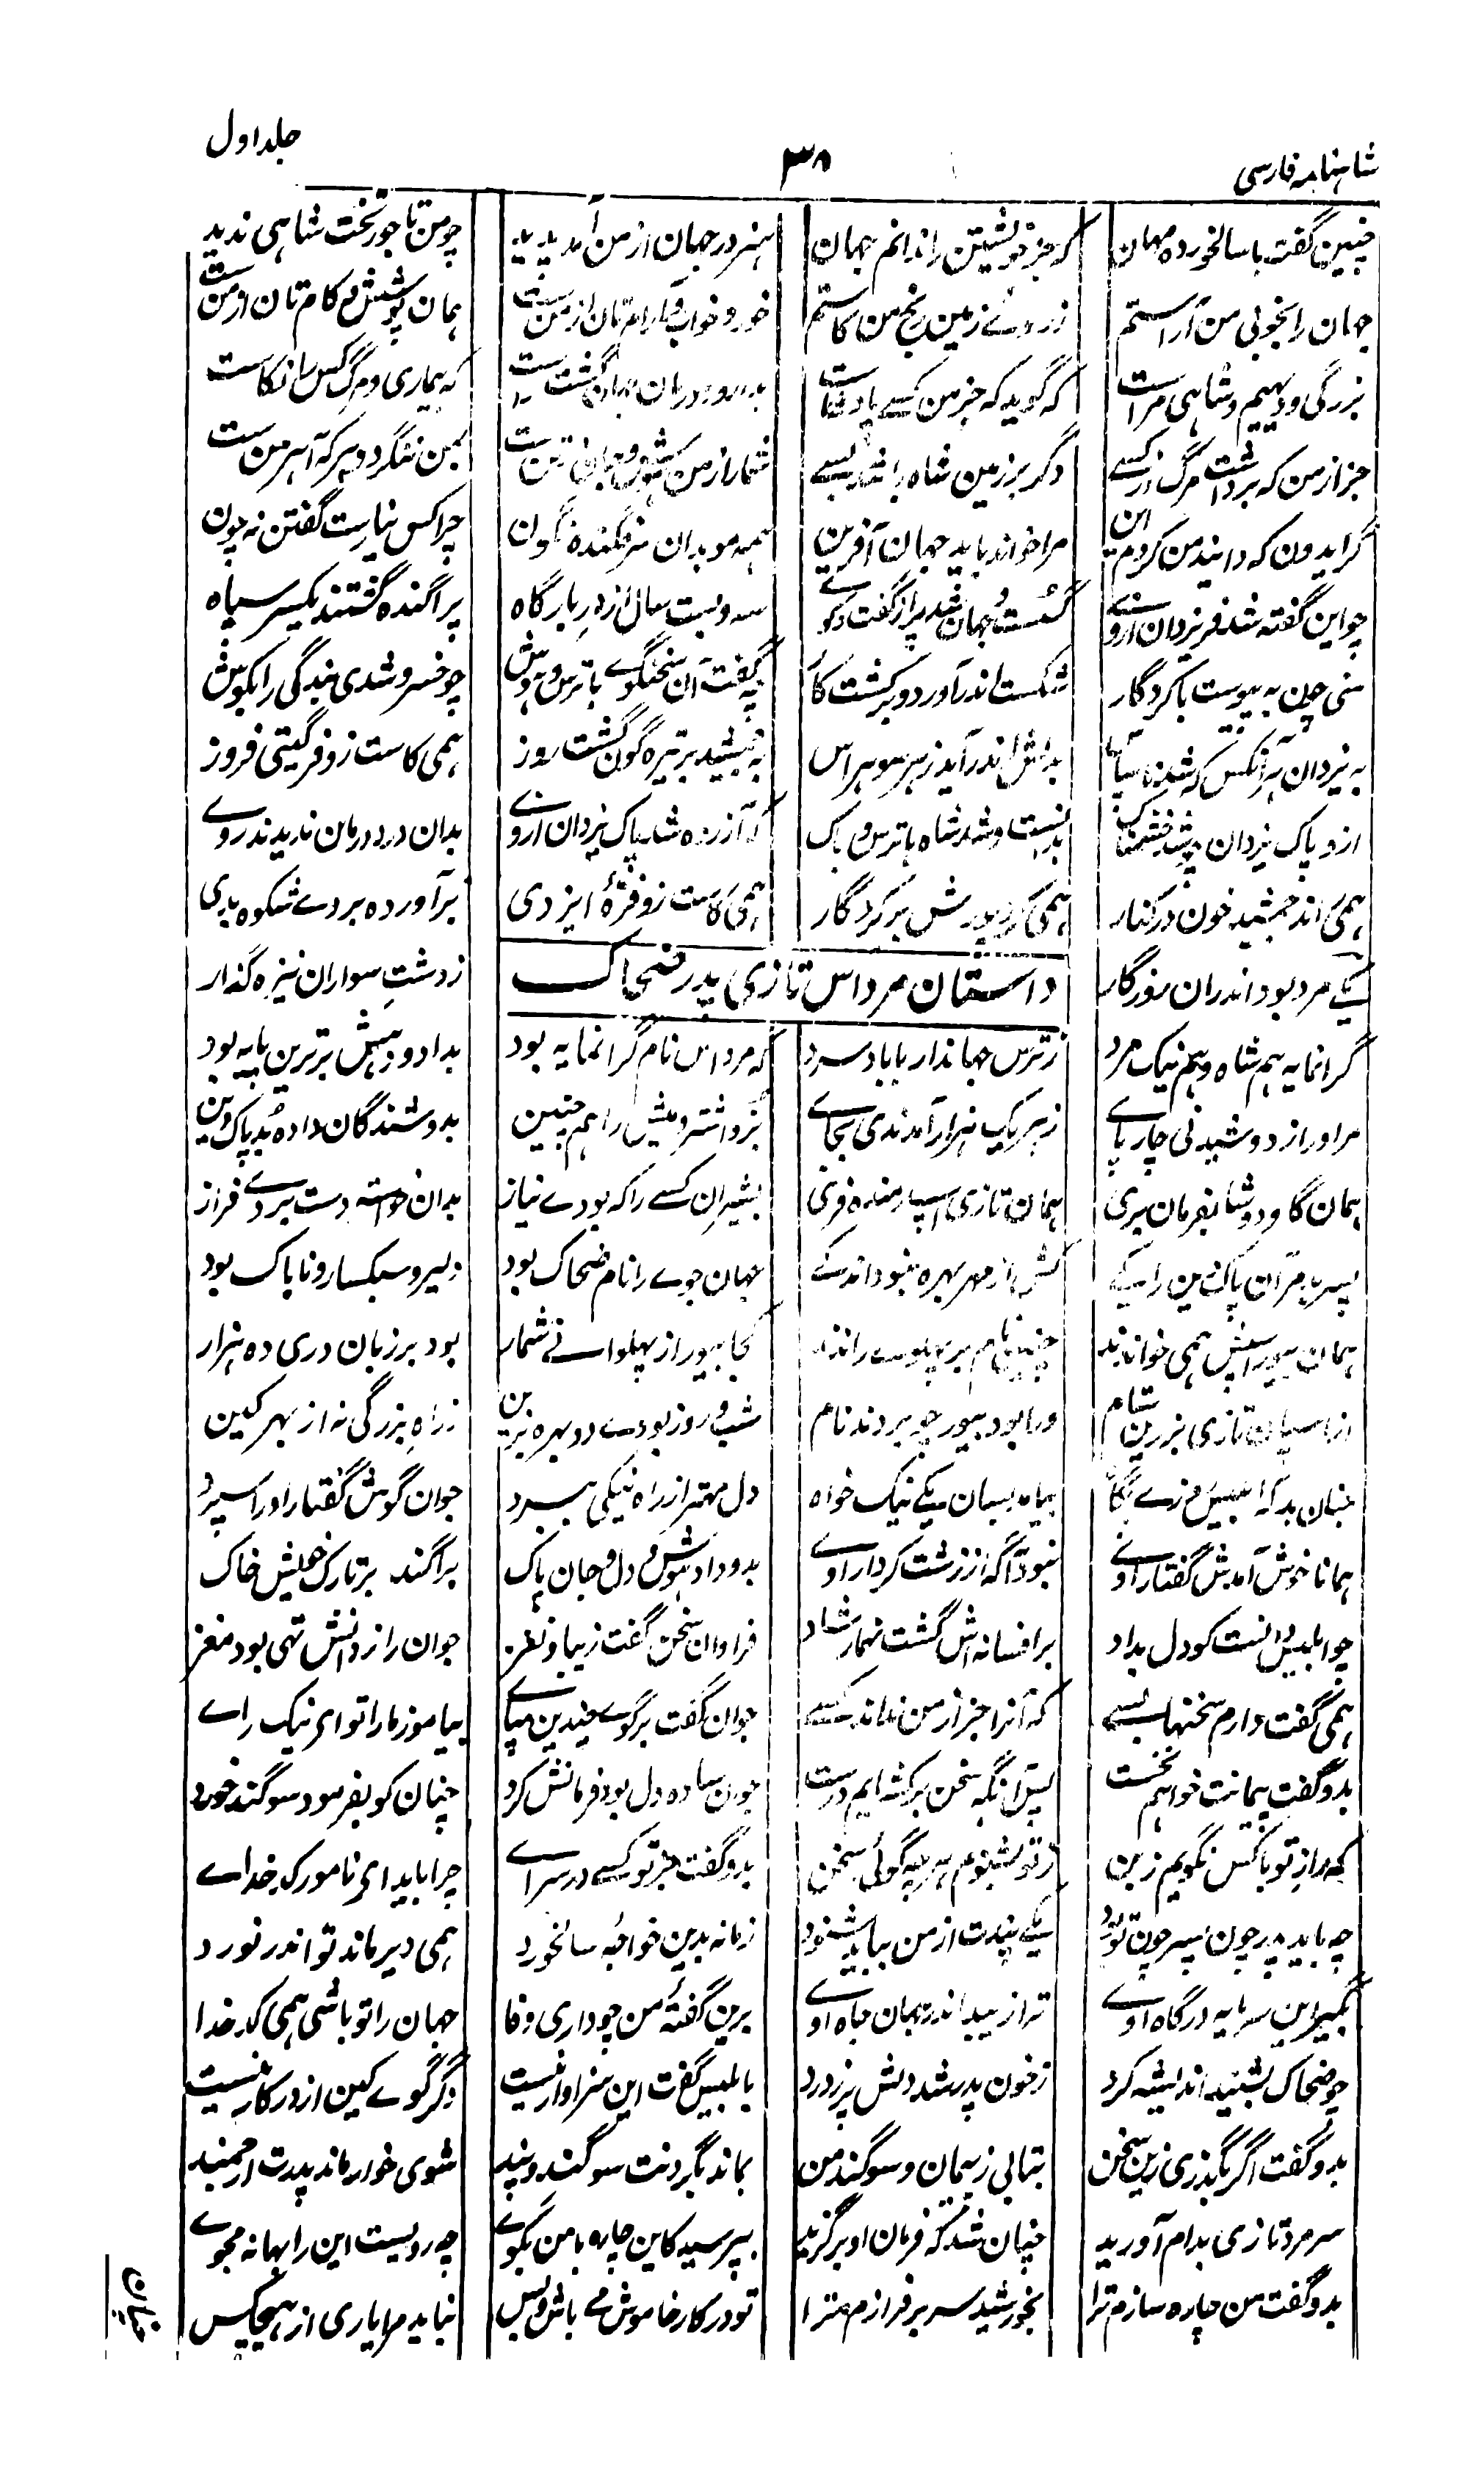 شاہنامہ فارسی ۳۸ جلد اول
چنین گفت با سالخورده مهان که جز خویشتن را ندانم جهان هنر در جهان از من آمد پدید چو من تاجور تخت شاهی ندید
جهان را بخوبی من آراستم ز روے زمین رنج من کاستم خور و خواب و آرام تان از من ست همان پوشش و کام تان از من ست
بزرگی و دیهیم و شاهی مراست که گوید که جز من کسے پادشاست بدارو و درمان جهان گشت راست که بیماری و مرگ کس را نکاست
جز از من که برداشت مرگ از کسے دگر بر زمین شاه باشد بسے شما را ز من هوش و جان در تن ست بمن نگرود هر که آهرمن ست
گر ایدون که دانید من کردم این مرا خواند باید جهان آفرین همه موبدان سرفگنده نگون چرا کس نیارست گفتن نه چون
چو این گفته شد فر یزدان ازوے گسست و جهان شد پر از گفت و گوے سه و بیست سال از در بارگاه پراگنده گشتند یکسر سپاه
منی چون به پیوست با کردگار شکست اندر آورد و برگشت کار چه گفت آن سخنگوے با ترس و هوش چو خسرو شدی بندگی را بکوش
به یزدان هر آنکس که شد ناسپاس بدلش اندر آید ز هر سو هراس به جمشید بر تیره گون گشت روز همی کاست زو فر گیتی فروز
ازو پاک یزدان چو شد خشمناک بدانست و شد شاه با ترس و باک که آزرده شد پاک یزدان ازوے بدان درد درمان ندیدند روے
همی راند جمشید خون در کنار همی کرد پوزش بر کردگار همی کاست زو فرهٔ ایزدی برآورده بر وے شکوه بدی
داستان مرداس تازی پدر ضحاک
یکے مرد بود اندران روزگار ز دشت سواران نیزه گذار
گرانمایه هم شاه و هم نیک مرد ز ترس جهاندار با باد سرد که مرداس نام گرانمایه بود بداد و دهش برترین پایه بود
مر او را ز دوشیدنی چارپاے ز هر یک هزار آمدندی بجاے بز و اشتر و میش را هم چنین بدوشندگان داده بد پاک دین
همان گاو دوشا بفرمان بری همان تازی اسپ رمنده فری بشیر آن کسے را که بودے نیاز بدان خواسته دست بردے فراز
پسر بد مر آن پاک دین را یکے کش از مهر بهره نبود اندکے جهان جوے را نام ضحاک بود دلیر و سبکسار و ناپاک بود
همان بیوراسپش همی خواندند چنین نام بر پهلوے راندند کجا بیور از پهلوانے شمار بود بر زبان دری ده هزار
ز اسپان تازی بزرین ستام ورا بود بیور چو بردند نام شب و روز بودے دو بهره بزین ز راه بزرگی نه از بهر کین
چنان بد که ابلیس روزے پگاه بیامد بسان یکے نیک خواه دل مهتر از راه نیکی ببرد جوان گوش گفتار او را سپرد
همانا خوش آمدش گفتار اوے نبود آگه از زشت کردار اوے بدو داد هوش و دل و جان پاک براگند بر تارک خویش خاک
چو ابلیس دانست کو دل بداد بر افسانه اش گشت نهمار شاد فراوان سخن گفت زیبا و نغز جوان را ز دانش تهی بود مغز
همی گفت دارم سخنها بسے که آنرا جز از من نداند کسے جوان گفت برگوے چندین مپاے بیاموز ما را تو اے نیک راے
بدو گفت پیمانت خواهم نخست پس آنگه سخن برکشایم درست جوان ساده دل بود فرمانش کرد چنان کو بفرمود سوگند خورد
که راز تو با کس نگویم ز بن ز تو بشنوم هر چه گوئی سخن بدو گفت جز تو کسے در سراے چرا باید اے نامور کدخداے
چه باید پدر چون پسر چون تو بود یکے پندت از من بباید شنود زمانه بدین خواجهٔ سالخورد همی دیر ماند تو اندر نورد
بگیر این سرمایه درگاه اوے ترا زیبد اندر جهان جاه اوے برین گفتهٔ من چو داری وفا جهان را تو باشی همی کدخدا
چو ضحاک بشنید اندیشه کرد ز خون پدر شد دلش پر ز درد بابلیس گفت این سزاوار نیست دگر گوے کین از در کار نیست
بدو گفت اگر بگذری زین سخن بتابی ز پیمان و سوگند من بماند بگردنت سوگند و بند شوی خوار و ماند پدرت ارجمند
سر مرد تازی بدام آورید چنان شد که فرمان او برگزید بپرسید کاین چاره با من بگوے چه رویست این را بهانه مجوے
بدو گفت من چاره سازم ترا بخورشید سر برفرازم ترا تو در کار خاموش مے باش و بس نباید مرا یاری از هیچکس
چنان